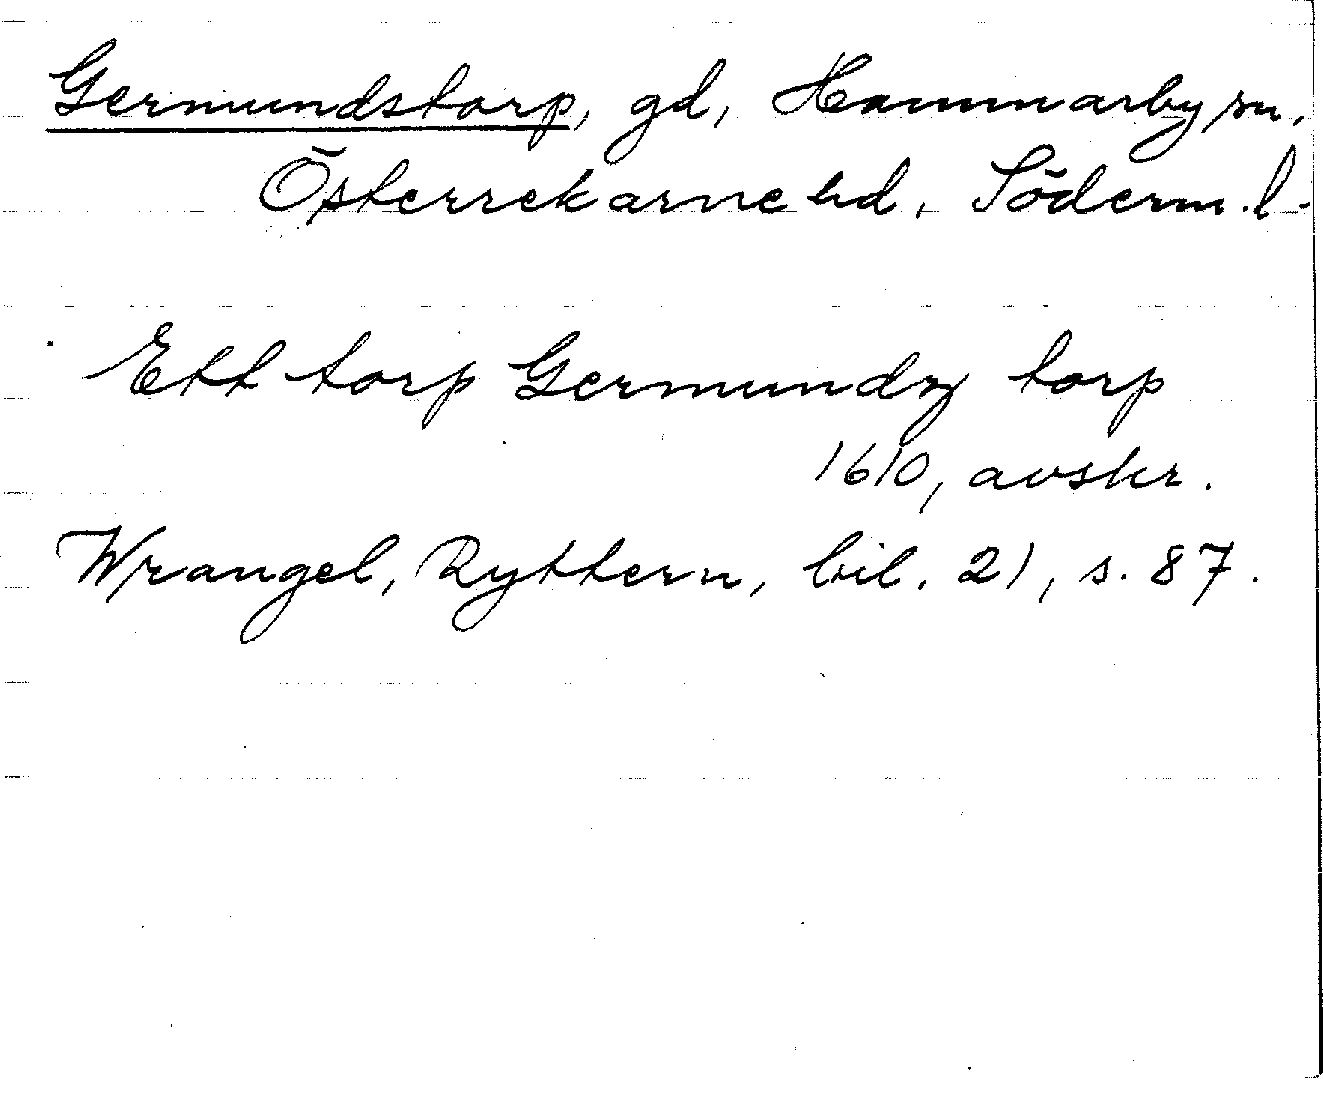 Germundstorp, gd, Hammarby sn,
Österrekarne hd, Söderm.l.
Ett torp Germundz torp
1610, avskr.
Wrangel, Ryttern, bil. 21, s. 87.